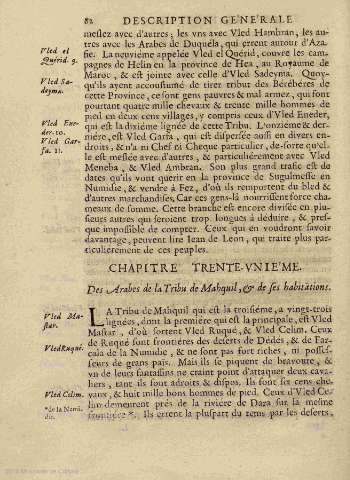 82 DESCRIPTION GENERALE
meslez avec d'autres; les vns avec Vled Hambran, les au-
tres avec les Arabes de Duquela, qui errent autour d'Aza-
Vled el Quérid. 9.
fie. La neuviéme appelée Vled el Quérid, couvre les cam-
pagnes de Helin en la province de Hea, au Royaume de
Maroc, & est jointe avec celle d'Vled Sadeyma. Quoy-
Vled Sa-deyma.
qu'ils ayent accoustumé de tirer tribut des Béréberes de
cette Province, ce sont gens pauvres & mal armez, qui font
pourtant quatre mille chevaux & trente mille hommes de
pied en deux cens villages, y compris ceux d'Vled Eneder,
Vled Ene-der. 10.
qui est la dixiéme lignée de cette Tribu. L'onziéme & der-
Vled Gar-fa. 11.
niére, est Vled Garfa, qui est dispersée aussi en divers en-
droits, & n'a ni Chef ni Cheque particulier, de-sorte qu'el-
le est meslée avec d'autres, & particuliérement avec Vled
Meneba, & Vled Ambran. Son plus grand trafic est de
dates qu'ils vont querir en la province de Sugulmesse en
Numidie, & vendre à Fez, d'où ils remportent du bled &
d'autres marchandises, Car ces gens-là nourrissent force cha-
meaux de somme. Cette branche est encore divisée en plu-
sieurs autres qui seroient trop longues à déduire, & pres-
que impossible de compter. Ceux qui en voudront savoir
davantage, peuvent lire Iean de Leon, qui traite plus par-
ticuliérement de ces peuples.
CHAPITRE TRENTE-VNIE'ME.
Des Arabes de la Tribu de Mahquil, & de ses habitations.
Vled Ma-star.
LA Tribu de Mahquil qui est la troisiéme, a vingt-trois
lignées, dont la premiére qui est la principale, est Vled
Mastar, d'où sortent Vled Ruqué, & Vled Celim. Ceux
Vled Ruqué.
de Ruqué sont frontiéres des deserts de Dédés, & de Far-
cala de la Numidie, & ne sont pas fort riches, ni possés-
seurs de grans païs. Mais ils se piquent de bravoure, &
vn de leurs fantassins ne craint point d'attaquer deux cava-
liers, tant ils sont adroits & dispos. Ils font six cens che-
Vled Celim.
vaux, & huit mille bons hommes de pied. Ceux d'Vled Ce-
* de la Numi-die.
lim demeurent prés de la riviére de Dara sur la mesme
frontiére *. Ils errent la pluspart du tems par les deserts,